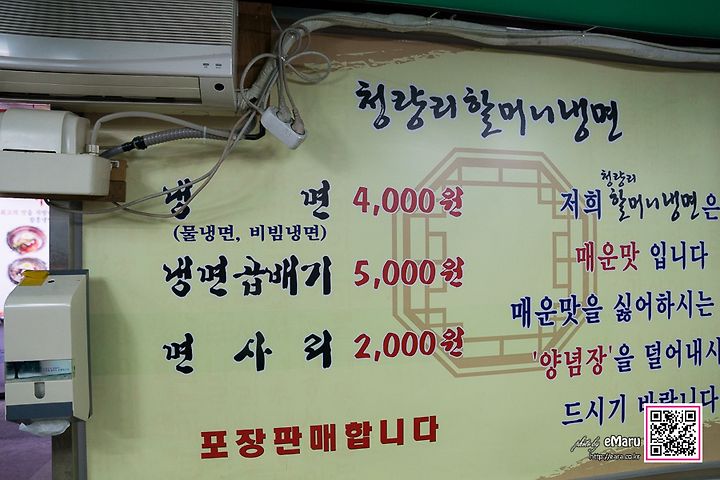 청량리할머니냉면
냉 면 4,000원
(물냉면, 비빔냉면)
냉면곱배기 5,000원
면 사 리 2,000원
포장판매합니다
저희 청량리 할머니냉면은
매운맛 입니다
매운맛을 싫어하시는
'양념장'을 덜어내시
드시기 바랍니다
photo by eMaru
http://eara.co.kr